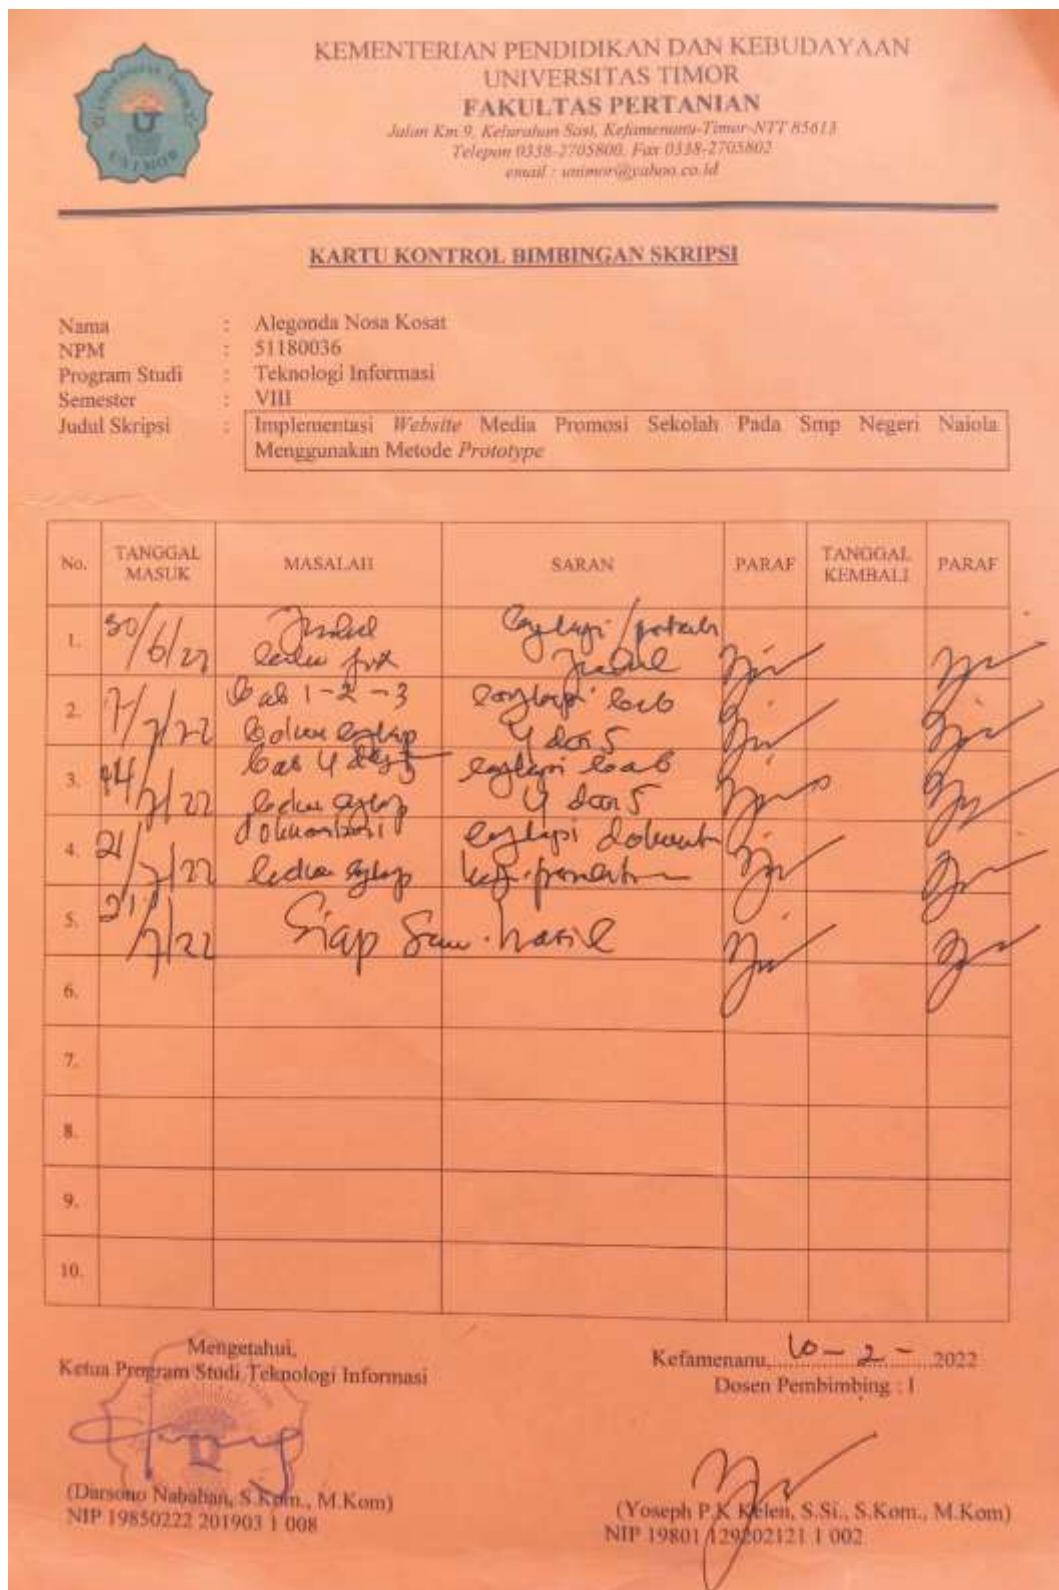 KEMENTERIAN PENDIDIKAN DAN KEBUDAYAAN
UNIVERSITAS TIMOR
FAKULTAS PERTANIAN
Jalan Km.9, Kelurahan Sasi, Kefamenanu-Timor-NTT 85613
Telepon 0338-2705800, Fax 0338-2705802
email : unimor@yahoo.co.id
UNIMOR
KARTU KONTROL BIMBINGAN SKRIPSI
Nama : Alegonda Nosa Kosat
NPM : 51180036
Program Studi : Teknologi Informasi
Semester : VIII
Judul Skripsi : Implementasi Website Media Promosi Sekolah Pada Smp Negeri Naiola
Menggunakan Metode Prototype
No. TANGGAL MASUK MASALAH SARAN PARAF TANGGAL KEMBALI PARAF
1. 30/6/22 Judul
Judul
2. 7/7/22 Bab 1-2-3 bab
4 dan 5
3. /7/22 bab 4 bab
4 dan 5
4. 21/7/22
5. /7/22 Siap Sem. hasil
6.
7.
8.
9.
10.
Mengetahui,
Ketua Program Studi Teknologi Informasi
(Darsono Nababan, S.Kom., M.Kom)
NIP 19850222 201903 1 008
Kefamenanu, 10-2-2022
Dosen Pembimbing : I
(Yoseph P.K Kelen, S.Si., S.Kom., M.Kom)
NIP 19801 129202121 1 002